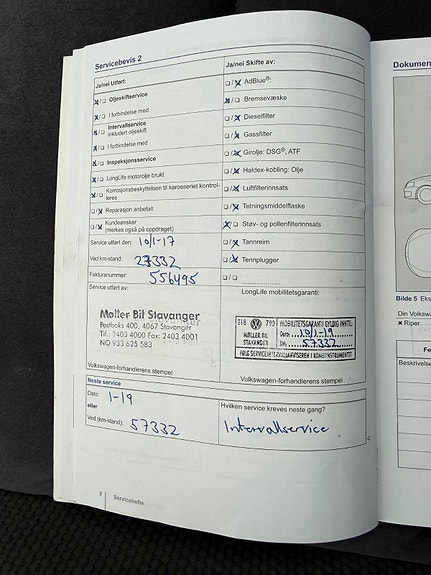 Servicebevis 2
Ja/nei Utført:
Ja/nei Skifte av:
Oljeskiftservice
I forbindelse med
Intervallservice
inkludert oljeskift
I forbindelse med
Inspeksjonsservice
LongLife motorolje brukt
Korrosjonsbeskyttelsen til karosseriet kontrol-
leres
Reparasjon anbefalt
Kundeønsker
(merkes også på oppdraget)
AdBlue®
Bremsevæske
Dieselfilter
Gassfilter
Girolje: DSG®, ATF
Haldex-kobling: Olje
Luftfilterinnsats
Tetningsmiddelflaske
Støv- og pollenfilterinnsats
Tannreim
Tennplugger
Service utført den: 10/1-17
Ved km-stand: 27332
Fakturanummer: 556495
Service utført av:
LongLife mobilitetsgaranti:
Møller Bil Stavanger
Postboks 400, 4067 Stavanger
Tlf.: 2403 4000 Fax: 2403 4001
NO 933 625 583
218 790 MOBILITETSGARANTI GYLDIG INNTIL:
MØLLER BIL Dato: 10/1-19
STAVANGER KM: 57332
FØLG SERVICEINTERVALLANVISEREN I KOMBIINSTRUMENTET
Volkswagen-forhandlerens stempel
Volkswagen-forhandlerens stempel
Neste service
Dato: 1-19
eller
Ved (km-stand): 57332
Hvilken service kreves neste gang?
Intervallservice
8 Servicehefte
Dokumen
Bilde 5 Eks
Din Volks
Riper
Fe
Beskrivelse